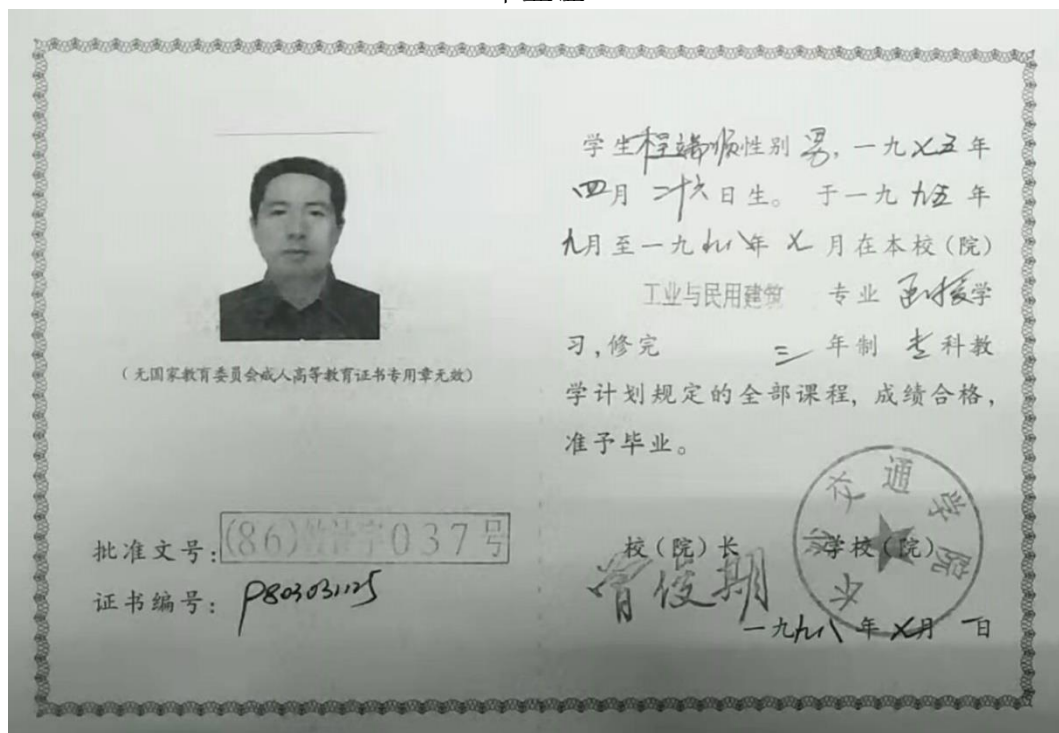 (无国家教育委员会成人高等教育证书专用章无效)
批准文号：(86)教法字037号
证书编号：P803031125
学生程瑞顺性别男，一九七五年
四月二十六日生。于一九九五年
九月至一九九八年七月在本校(院)
工业与民用建筑 专业 函授学
习，修完 三年制 专科教
学计划规定的全部课程，成绩合格，
准予毕业。
校(院)长 学校(院)
交通学院
一九九八年七月一日